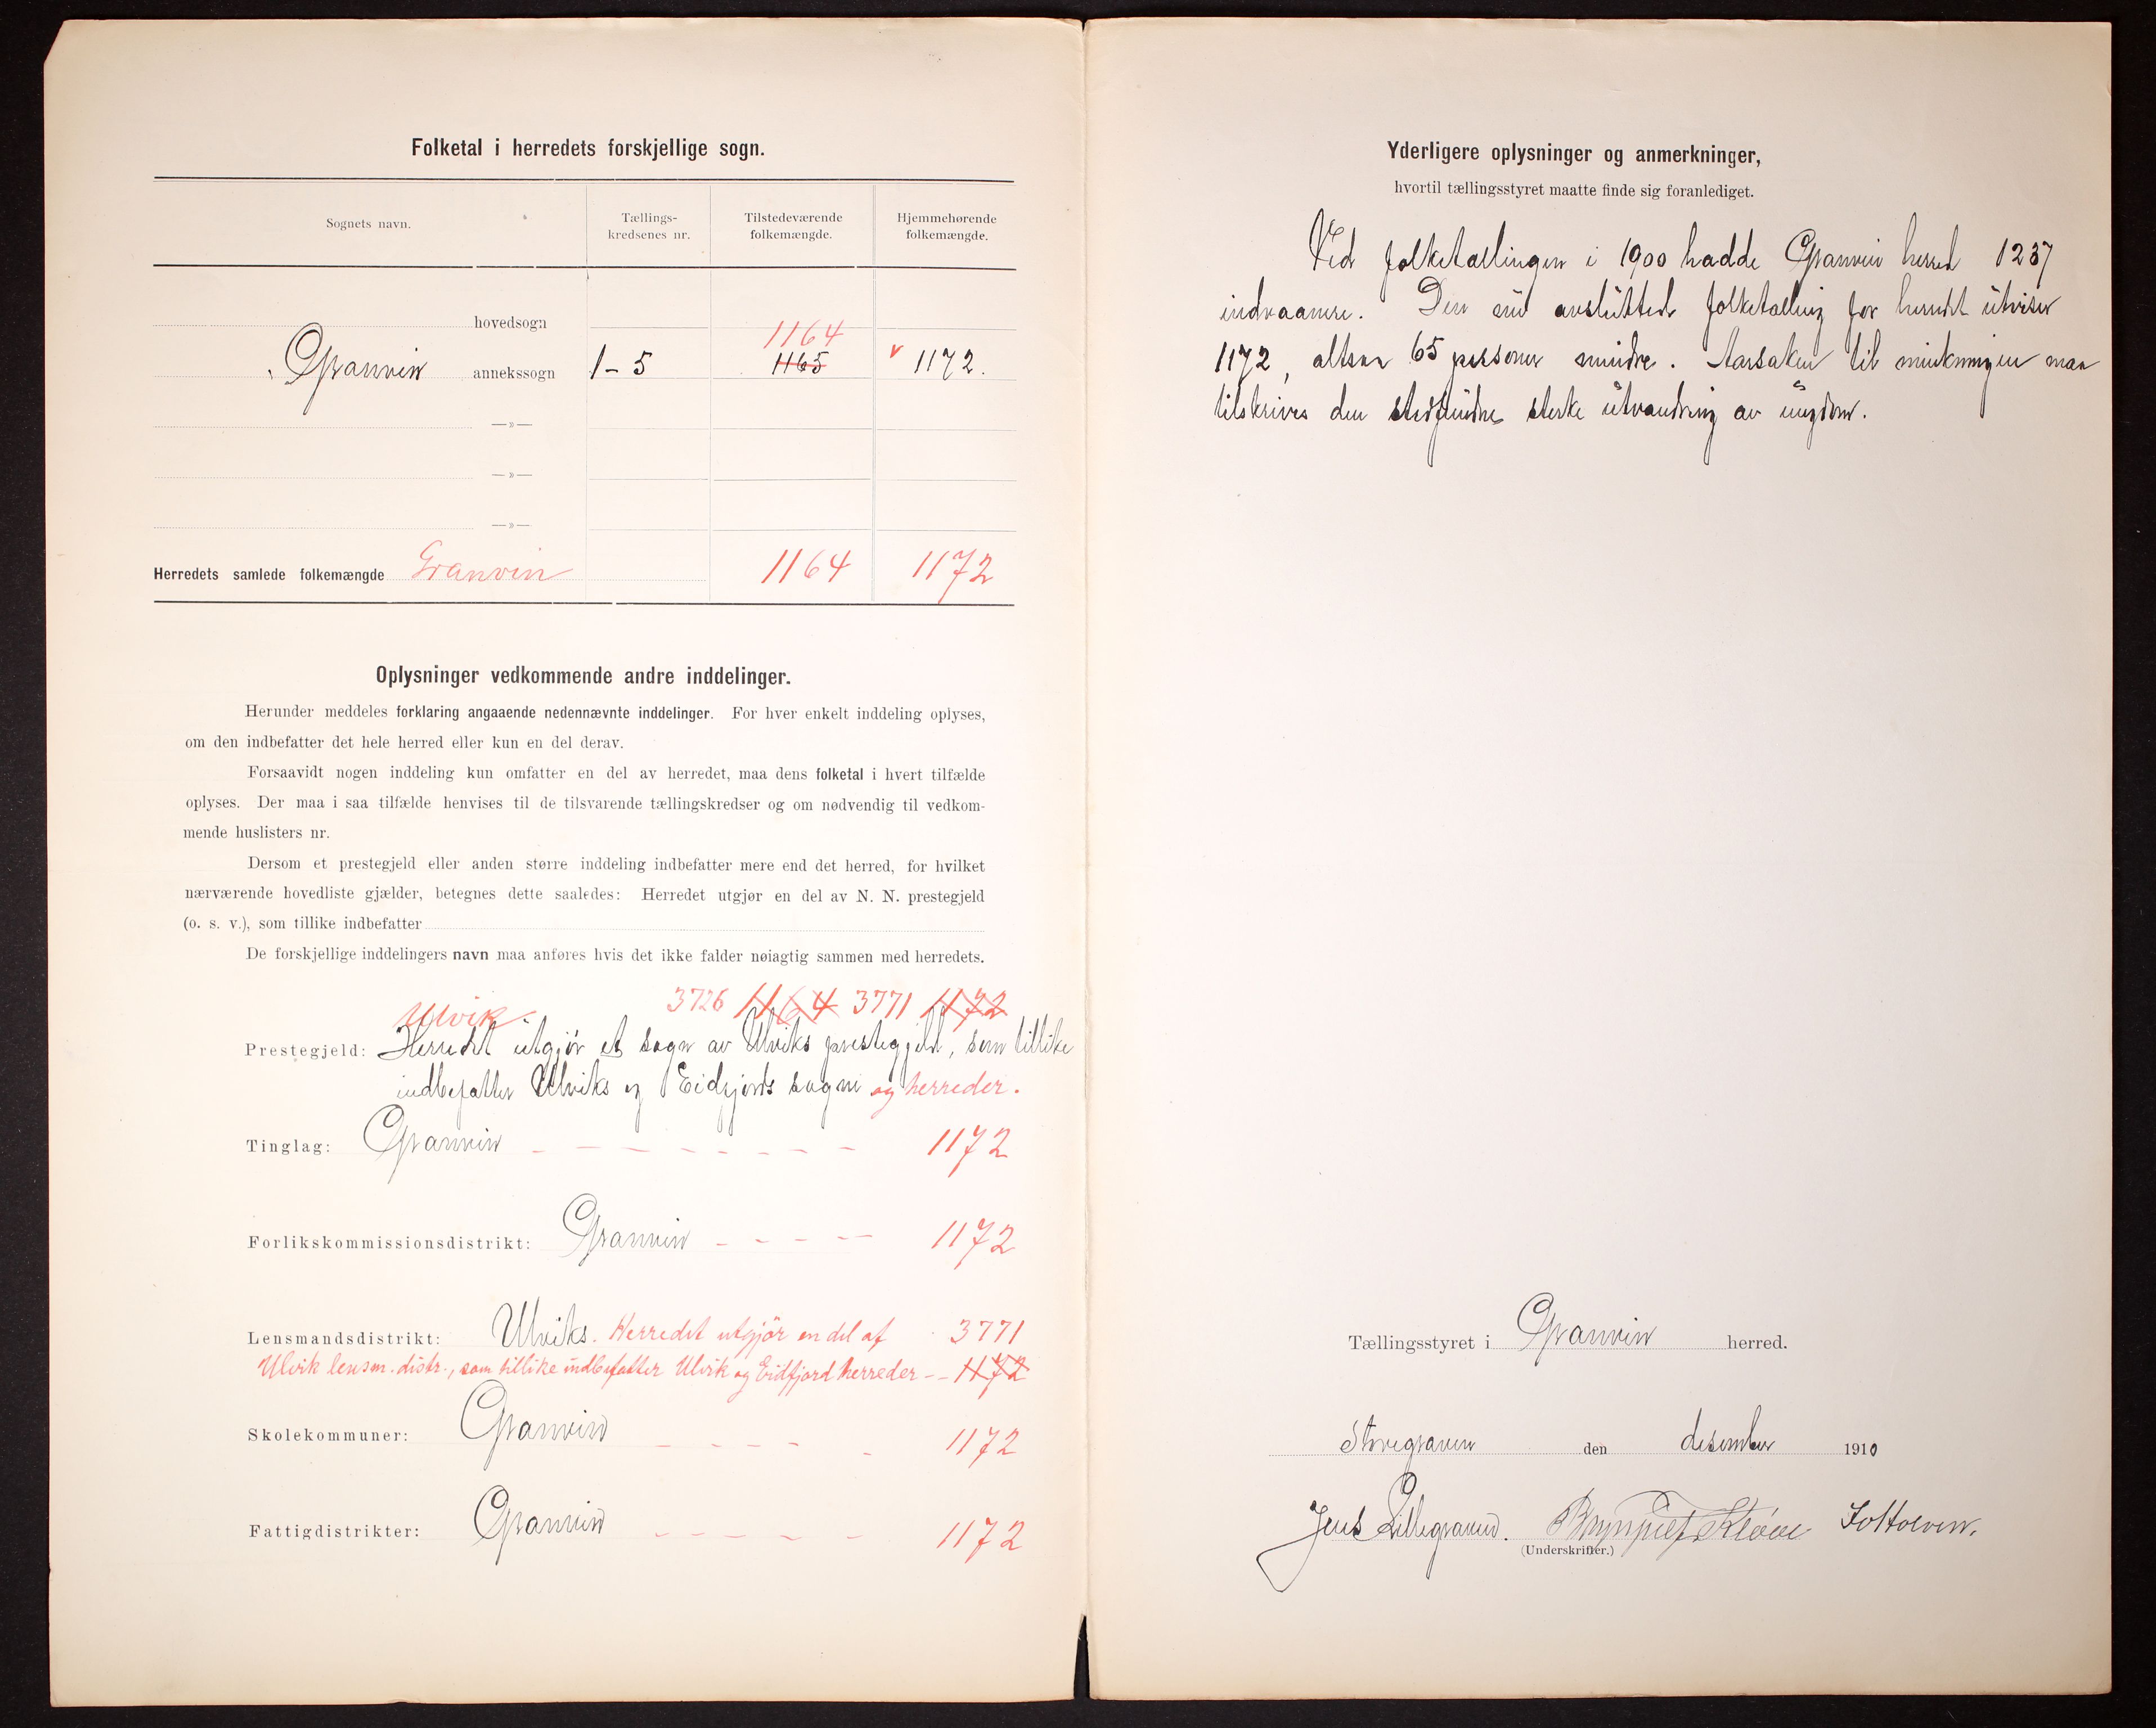 Folketal i herredets forskjellige sogn.
Sognets navn.
Tællings-
kredsenes nr.
Tilstedeværende
folkemængde.
Hjemmehørende
folkemængde.
hovedsogn
1164
Granvin annekssogn 1-5 1165 v 1172.
—»—
—»—
—»—
Herredets samlede folkemængde Granvin 1164 1172
Oplysninger vedkommende andre inddelinger.
Herunder meddeles forklaring angaaende nedennævnte inddelinger. For hver enkelt inddeling oplyses,
om den indbefatter det hele herred eller kun en del derav.
Forsaavidt nogen inddeling kun omfatter en del av herredet, maa dens folketal i hvert tilfælde
oplyses. Der maa i saa tilfælde henvises til de tilsvarende tællingskredser og om nødvendig til vedkom-
mende huslisters nr.
Dersom et prestegjeld eller anden større inddeling indbefatter mere end det herred, for hvilket
nærværende hovedliste gjælder, betegnes dette saaledes: Herredet utgjør en del av N. N. prestegjeld
(o. s. v.), som tillike indbefatter
De forskjellige inddelingers navn maa anføres hvis det ikke falder nøiagtig sammen med herredets.
Ulvik 3726 1164 3771 1172
Prestegjeld: Herredet utgjør et sogn av Ulviks prestegjeld, som tillike
indbefatter Ulviks og Eidfjords sogne og herreder.
Tinglag: Granvin – – – – – – – 1172
Forlikskommissionsdistrikt: Granvin – – – – 1172
Lensmandsdistrikt: Ulviks. Herredet utgjör en del af 3771
Ulvik lensm. distr., som tillike indbefatter Ulvik og Eidfjord herreder – – 1172
Skolekommuner: Granvin – – – – – 1172
Fattigdistrikter: Granvin – – – – – 1172
Yderligere oplysninger og anmerkninger,
hvortil tællingsstyret maatte finde sig foranlediget.
Ved folketællingen i 1900 hadde Granvin herred 1237
indvaanere. Den nu avsluttede folketælling for herredet utviser
1172, altsaa 65 personer mindre. Aarsaken til minkningen maa
tilskrives den stedfundne sterke utvandring av ungdom.
Tællingsstyret i Granvin herred.
Storegraven den desember 1910
Jens Lillegraven. Brynjulf Kløve
(Underskrifter.)